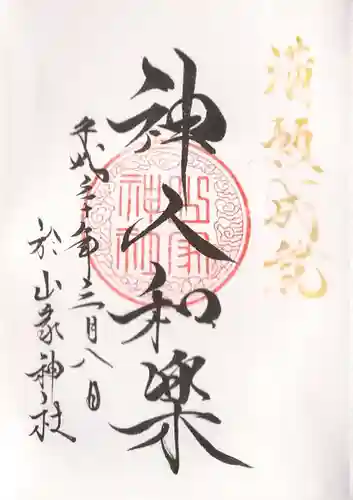 満願成就
神人和楽
平成三十年三月八日
於山家神社
山家神社